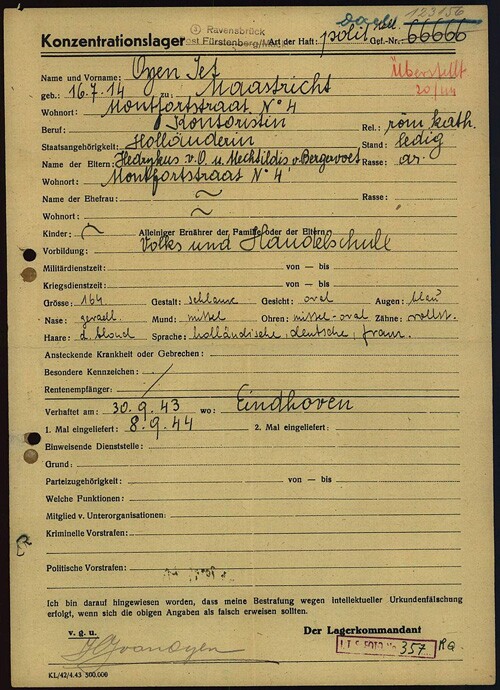 123156
Ravensbrück
Post Fürstenberg/Meckl.
Konzentrationslager Art der Haft: polit Gef.-Nr.: 66666
Überstellt
Name und Vorname: Oyen Jet
geb.: 16.7.14 zu: Maastricht
Wohnort: Montfortstraat N° 4
Beruf: Kontoristin Rel.: röm. kath.
Staatsangehörigkeit: Holländerin Stand: ledig
Name der Eltern: v.O. u. Mechtildis v. Rasse: ar.
Wohnort: Montfortstraat N° 4
Name der Ehefrau: ~ Rasse:
Wohnort: ~
Kinder: Alleiniger Ernährer der Familie oder der Eltern:
Vorbildung: Volks und Handelschule
Militärdienstzeit: von — bis
Kriegsdienstzeit: von — bis
Grösse: 164 Gestalt: schlank Gesicht: oval Augen: blau
Nase: geradl. Mund: mittel Ohren: mittel-oval Zähne: vollst.
Haare: d. blond Sprache: holländische, deutsche, franz.
Ansteckende Krankheit oder Gebrechen:
Besondere Kennzeichen:
Rentenempfänger:
Verhaftet am: 30.9.43 wo: Eindhoven
1. Mal eingeliefert: 8.9.44 2. Mal eingeliefert:
Einweisende Dienststelle:
Grund:
Parteizugehörigkeit: von — bis
Welche Funktionen:
Mitglied v. Unterorganisationen:
Kriminelle Vorstrafen:
Politische Vorstrafen:
Ich bin darauf hingewiesen worden, dass meine Bestrafung wegen intellektueller Urkundenfälschung
erfolgt, wenn sich die obigen Angaben als falsch erweisen sollten.
v. g. u. Der Lagerkommandant
I.T.S. FOTO No 357
KL/42/4.43 500.000